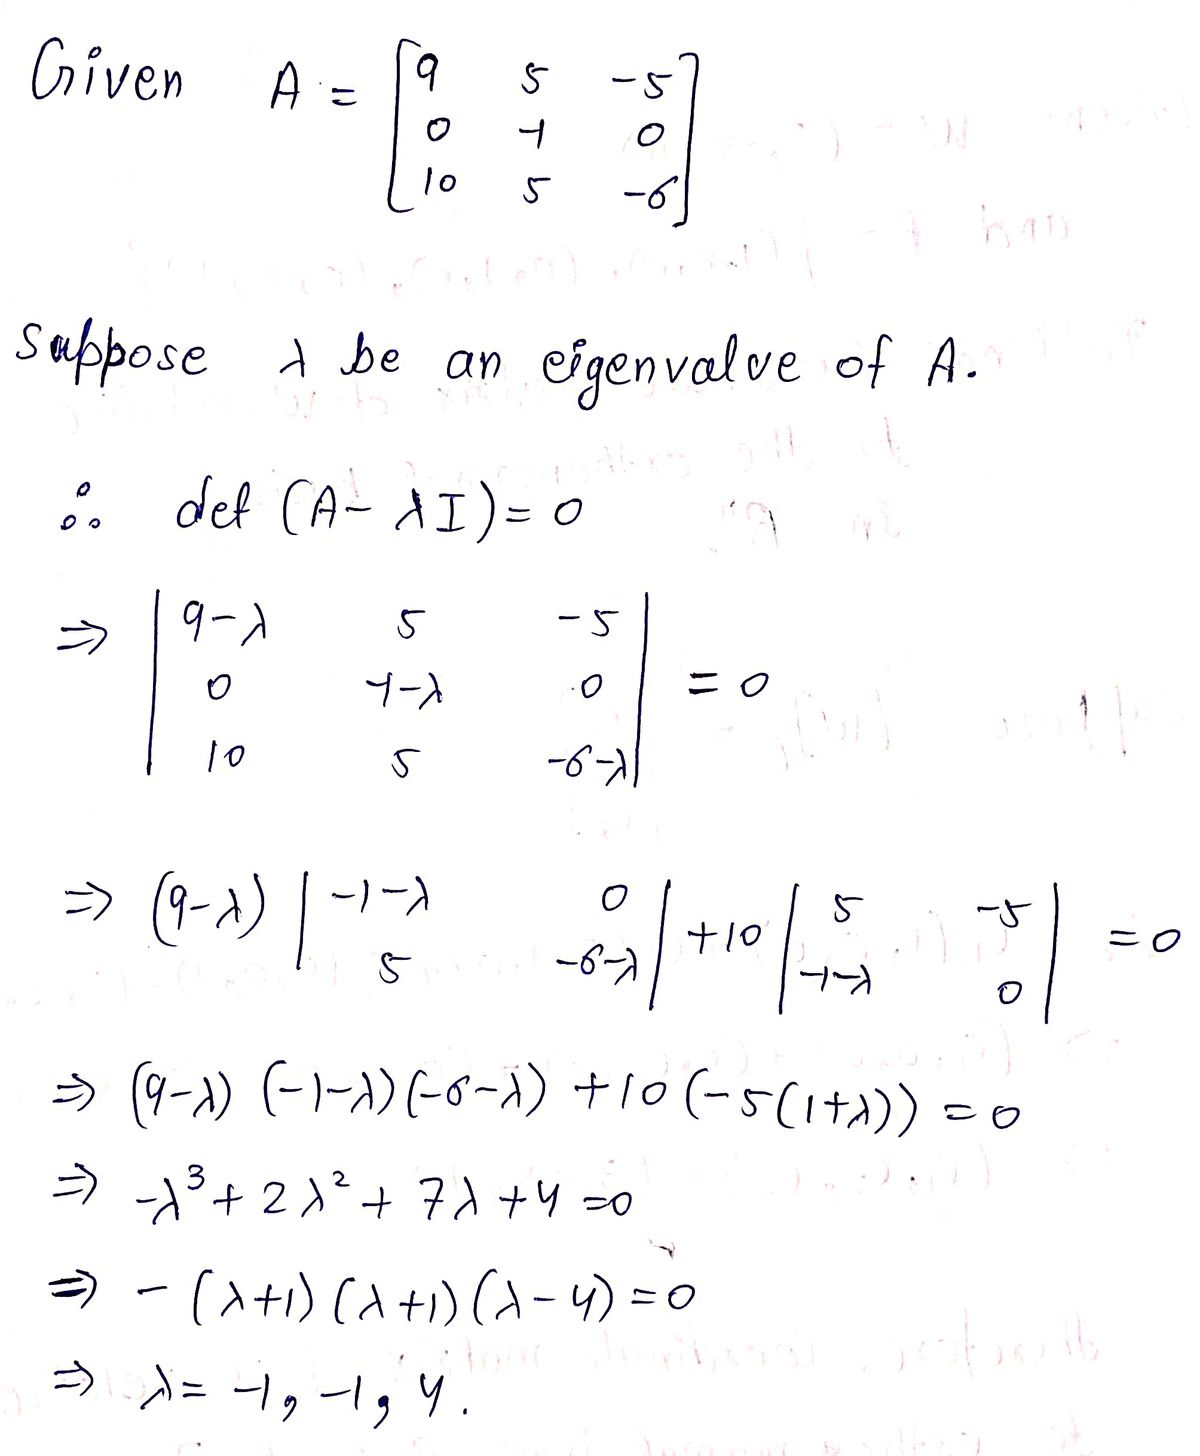 Given A = [9 5 -5
0 -1 0
10 5 -6]
Suppose λ be an eigenvalue of A.
∴ det (A - λI) = 0
⇒ |9-λ 5 -5
0 -1-λ 0
10 5 -6-λ| = 0
⇒ (9-λ) |-1-λ 0
5 -6-λ| +10 |5 -5
-1-λ 0| = 0
⇒ (9-λ) (-1-λ) (-6-λ) +10 (-5(1+λ)) = 0
⇒ -λ³ + 2λ² + 7λ + 4 = 0
⇒ - (λ+1) (λ+1) (λ-4) = 0
⇒ λ = -1, -1, 4.